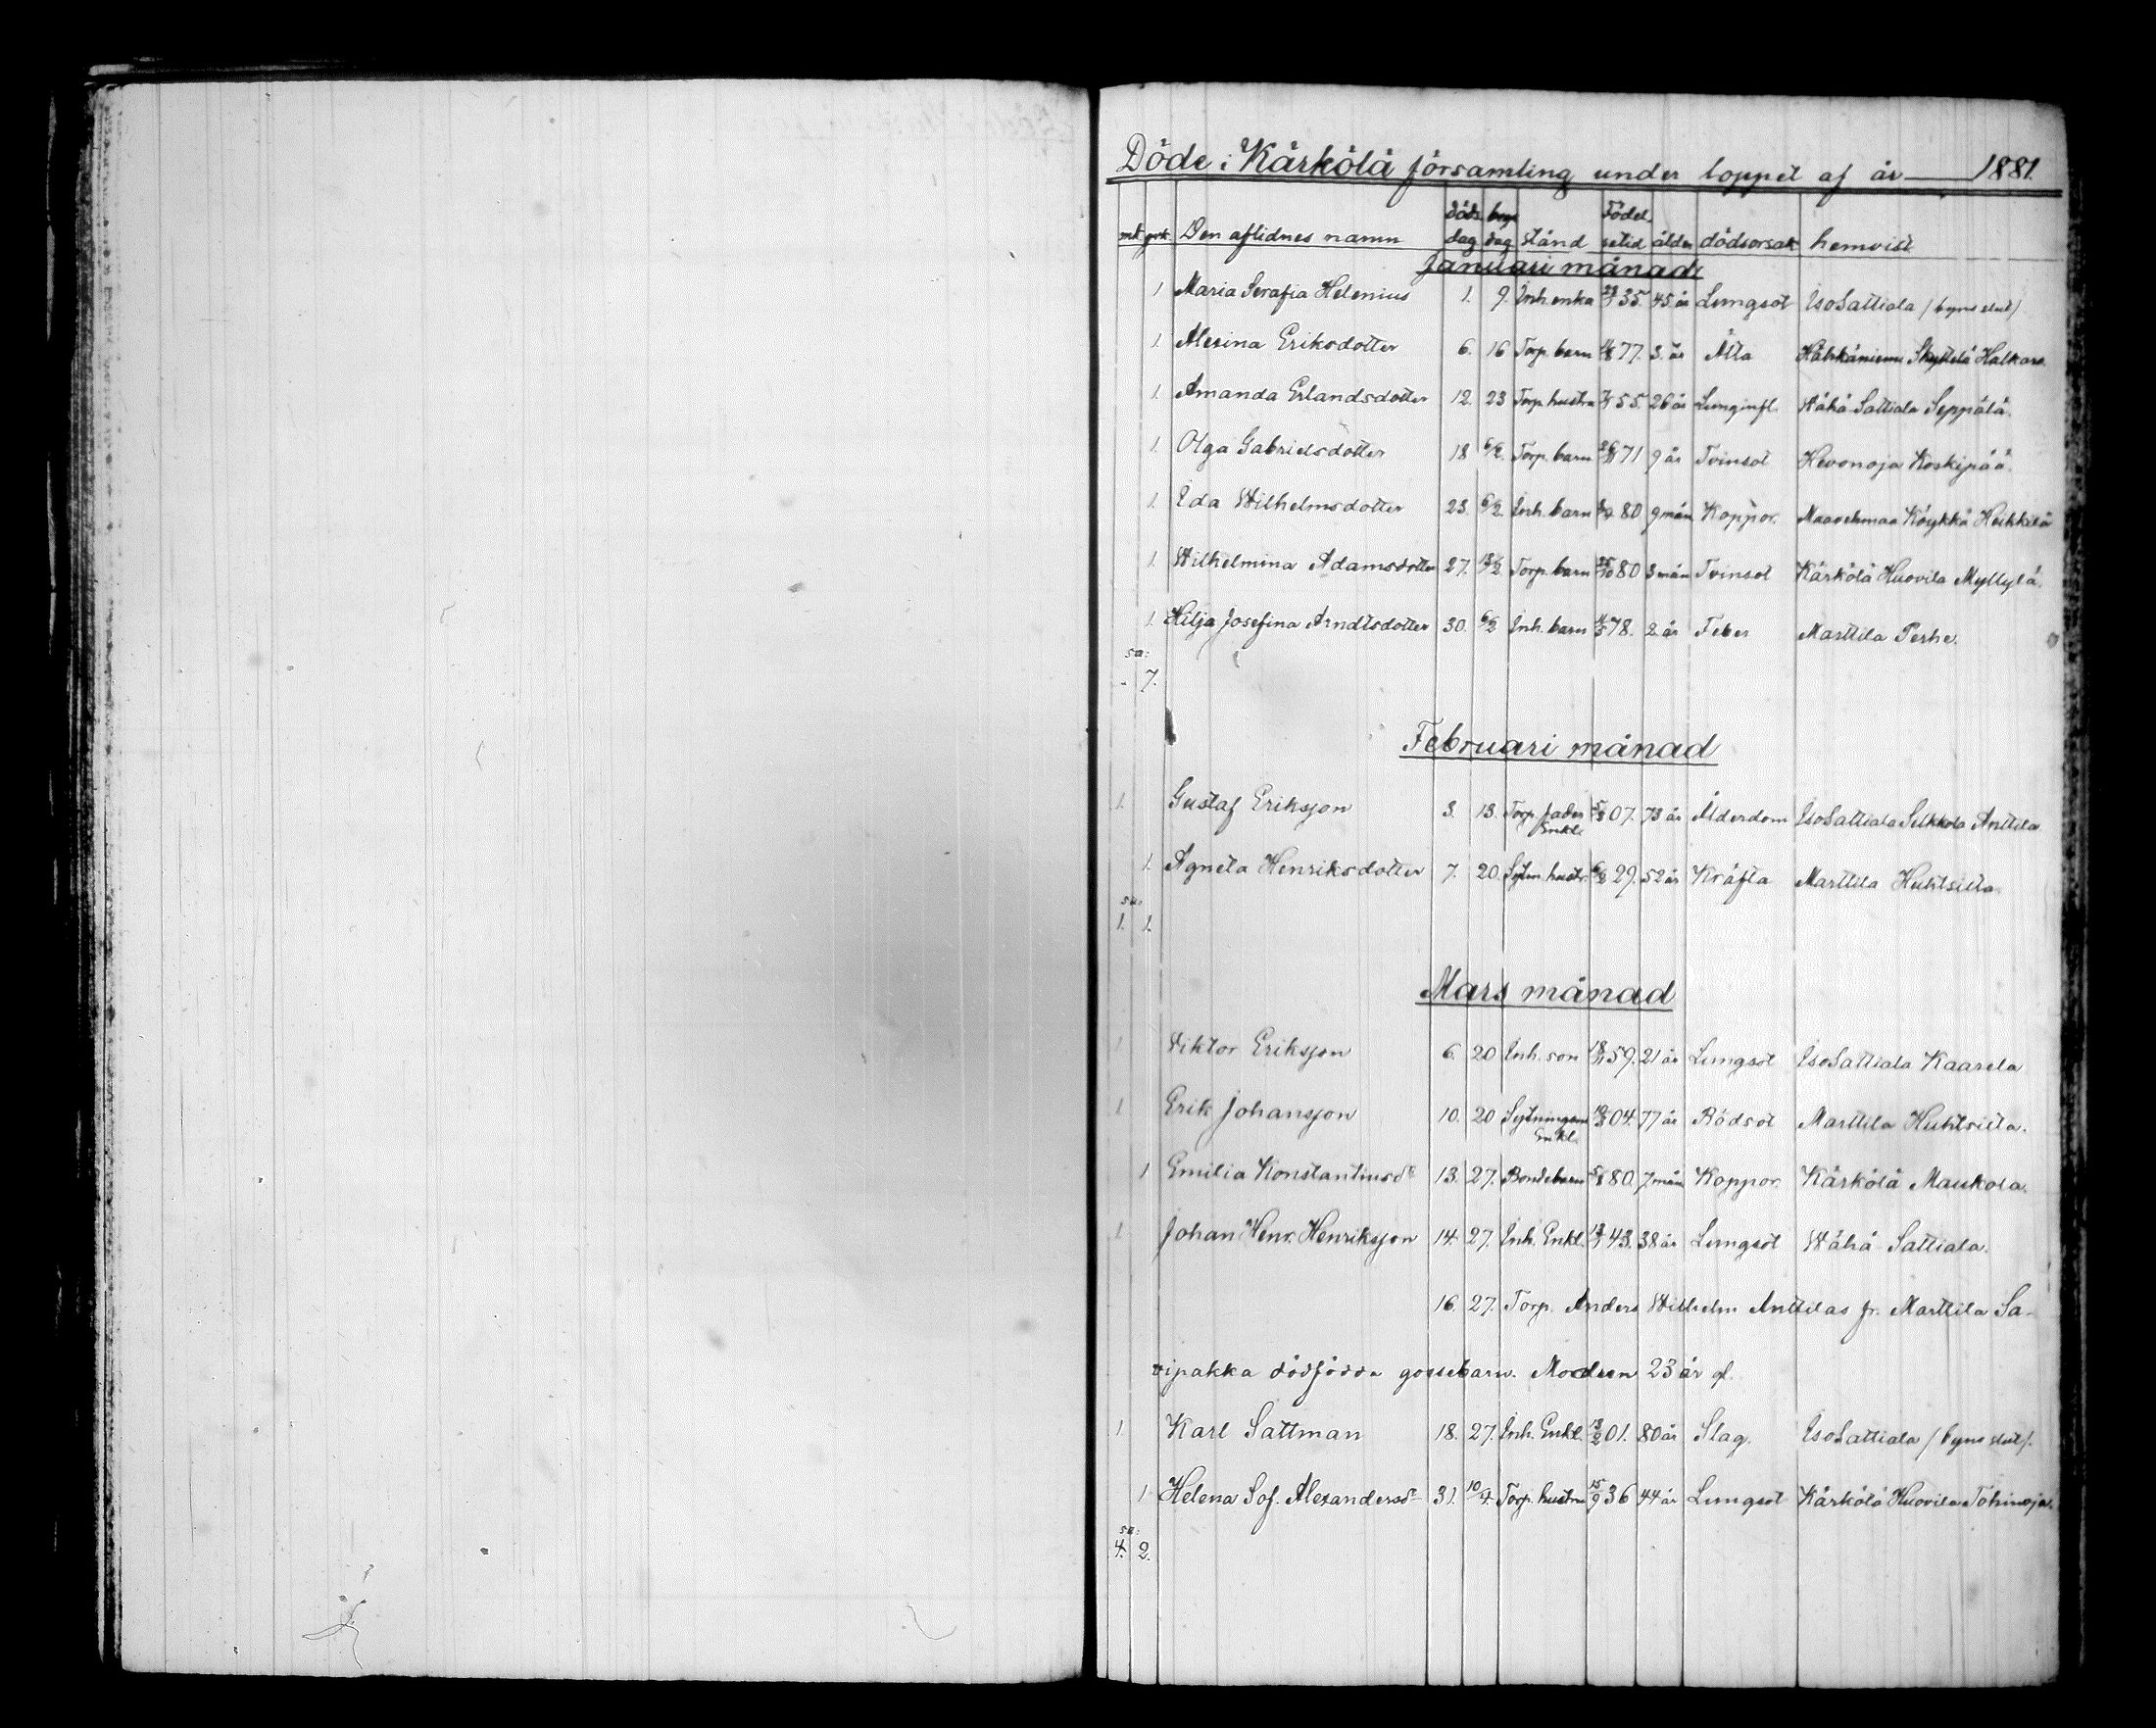 Döde i Kärkölä församling under loppet af år 1881.
mk. qvk. Den aflidnes namn döds dag begr dag stånd Födel setid ålder dödsorsak hemvist
Januari månad
1 Maria Serafia Helenius 1. 9. Inh. enka 35. 45. år Lungsot IsoSattiala / byns slut /
1. Alexina Eriksdotter 6. 16 Torp. barn 77. 3. år Ålta
1. Amanda Erlandsdotter 12. 23 Torp. hustru 55. 26 år Lunginfl. Wähä Sattiala Seppälä.
1. Olga Gabrielsdotter 18 6/2. Torp. barn 71 9 år Tvinsot Hevonoja Koskipää.
1. Eda Wilhelmsdotter 23. 6/2. Inh. barn 80 9 mån Koppor. Maavehmaa Köykkä Heikkilä
1. Wilhelmina Adamsdotter 27. 13/2 Torp. barn 80 3 mån Tvinsot Kärkölä Huovila Myllylä.
1. Hilja Josefina Arndtsdotter 30. 6/2 Inh. barn 78. 2. år Feber Marttila Perhe.
sa:
- 7.
Februari månad
1. Gustaf Eriksson 3. 13. Torp. fader 07. 73 år Ålderdom IsoSattiala Selkkola Anttila
Enkl.
1. Agneta Henriksdotter 7. 20. Sytn. hustr. 29. 52 år Kräfta Marttila Huhtsilta.
sa:
1. 1.
Mars månad
1 Viktor Eriksson 6. 20 Inh. son 18/11 59. 21 år Lungsot IsoSattiala Kaarela
1 Erik Johansson 10. 20 Sytningsm 04. 77 år Rödsot Marttila Huhtsilta.
Enkl.
1 Emilia Konstantinsdr 13. 27. Bondebarn 5/8 80. 7 mån Koppor. Kärkölä Maukola.
1 Johan Henr. Henriksson 14. 27. Inh. Enkl. 43. 38 år Lungsot Wähä Sattiala.
16. 27. Torp. Anders Wilhelm Anttilas fr. Marttila Sa-
vipakka dödfödda gossebarn. Modren 23 år gl.
1 Karl Sattman 18. 27. Inh. Enkl. 13/2 01. 80 år Slag. IsoSattiala / byns slut /.
1 Helena Sof. Alexandersdr 31. 10/4. Torp. hustru 15/9 36 44 år Lungsot Kärkölä Huovila Töhinoja.
sa:
4. 2.